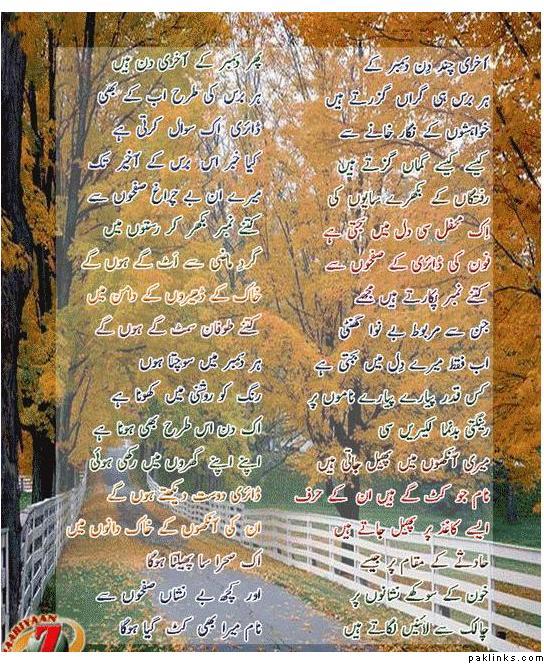 آخری چند دن دسمبر کے
ہر برس ہی گراں گزرتے ہیں
خواہشوں کے نگار خانے سے
کیسے کیسے گماں گزرتے ہیں
رفتگاں کے بکھرے سایوں کی
اک محفل سی دل میں سجتی ہے
فون کی ڈائری کے صفحوں سے
کتنے نمبر پکارتے ہیں مجھے
جن سے مربوط بے نوا گھنٹی
اب فقط میرے دل میں بجتی ہے
کس قدر پیارے پیارے ناموں پر
رینگتی بدنما لکیریں سی
میری آنکھوں میں پھیل جاتی ہیں
نام جو کٹ گئے ہیں ان کے حرف
ایسے کاغذ پر پھیل جاتے ہیں
حادثے کے مقام پر جیسے
خون کے سوکھے نشانوں پر
چاک سے لائنیں لگاتے ہیں
پھر دسمبر کے آخری دن ہیں
ہر برس کی طرح اب کے بھی
ڈائری اک سوال کرتی ہے
کیا خبر اس برس کے آخیر تک
میرے ان بے چراغ صفحوں سے
کتنے نمبر بکھر کر رستوں میں
گرد ماضی سے اٹ گے ہوں گے
خاک کے ڈھیروں کے دامن میں
کتنے طوفان سمٹ گے ہوں گے
ہر دسمبر میں سوچتا ہوں
رنگ کو روشنی میں کھونا ہے
اک دن اس طرح بھی ہونا ہے
اپنے اپنے گھروں میں رکھی ہوئی
ڈائری دوست دیکھتے ہوں گے
ان کی آنکھوں کے خاک دانوں میں
اک صحرا سا پھیلتا ہوگا
اور کچھ بے نشاں صفحوں سے
نام میرا بھی کٹ گیا ہوگا
7
paklinks.com